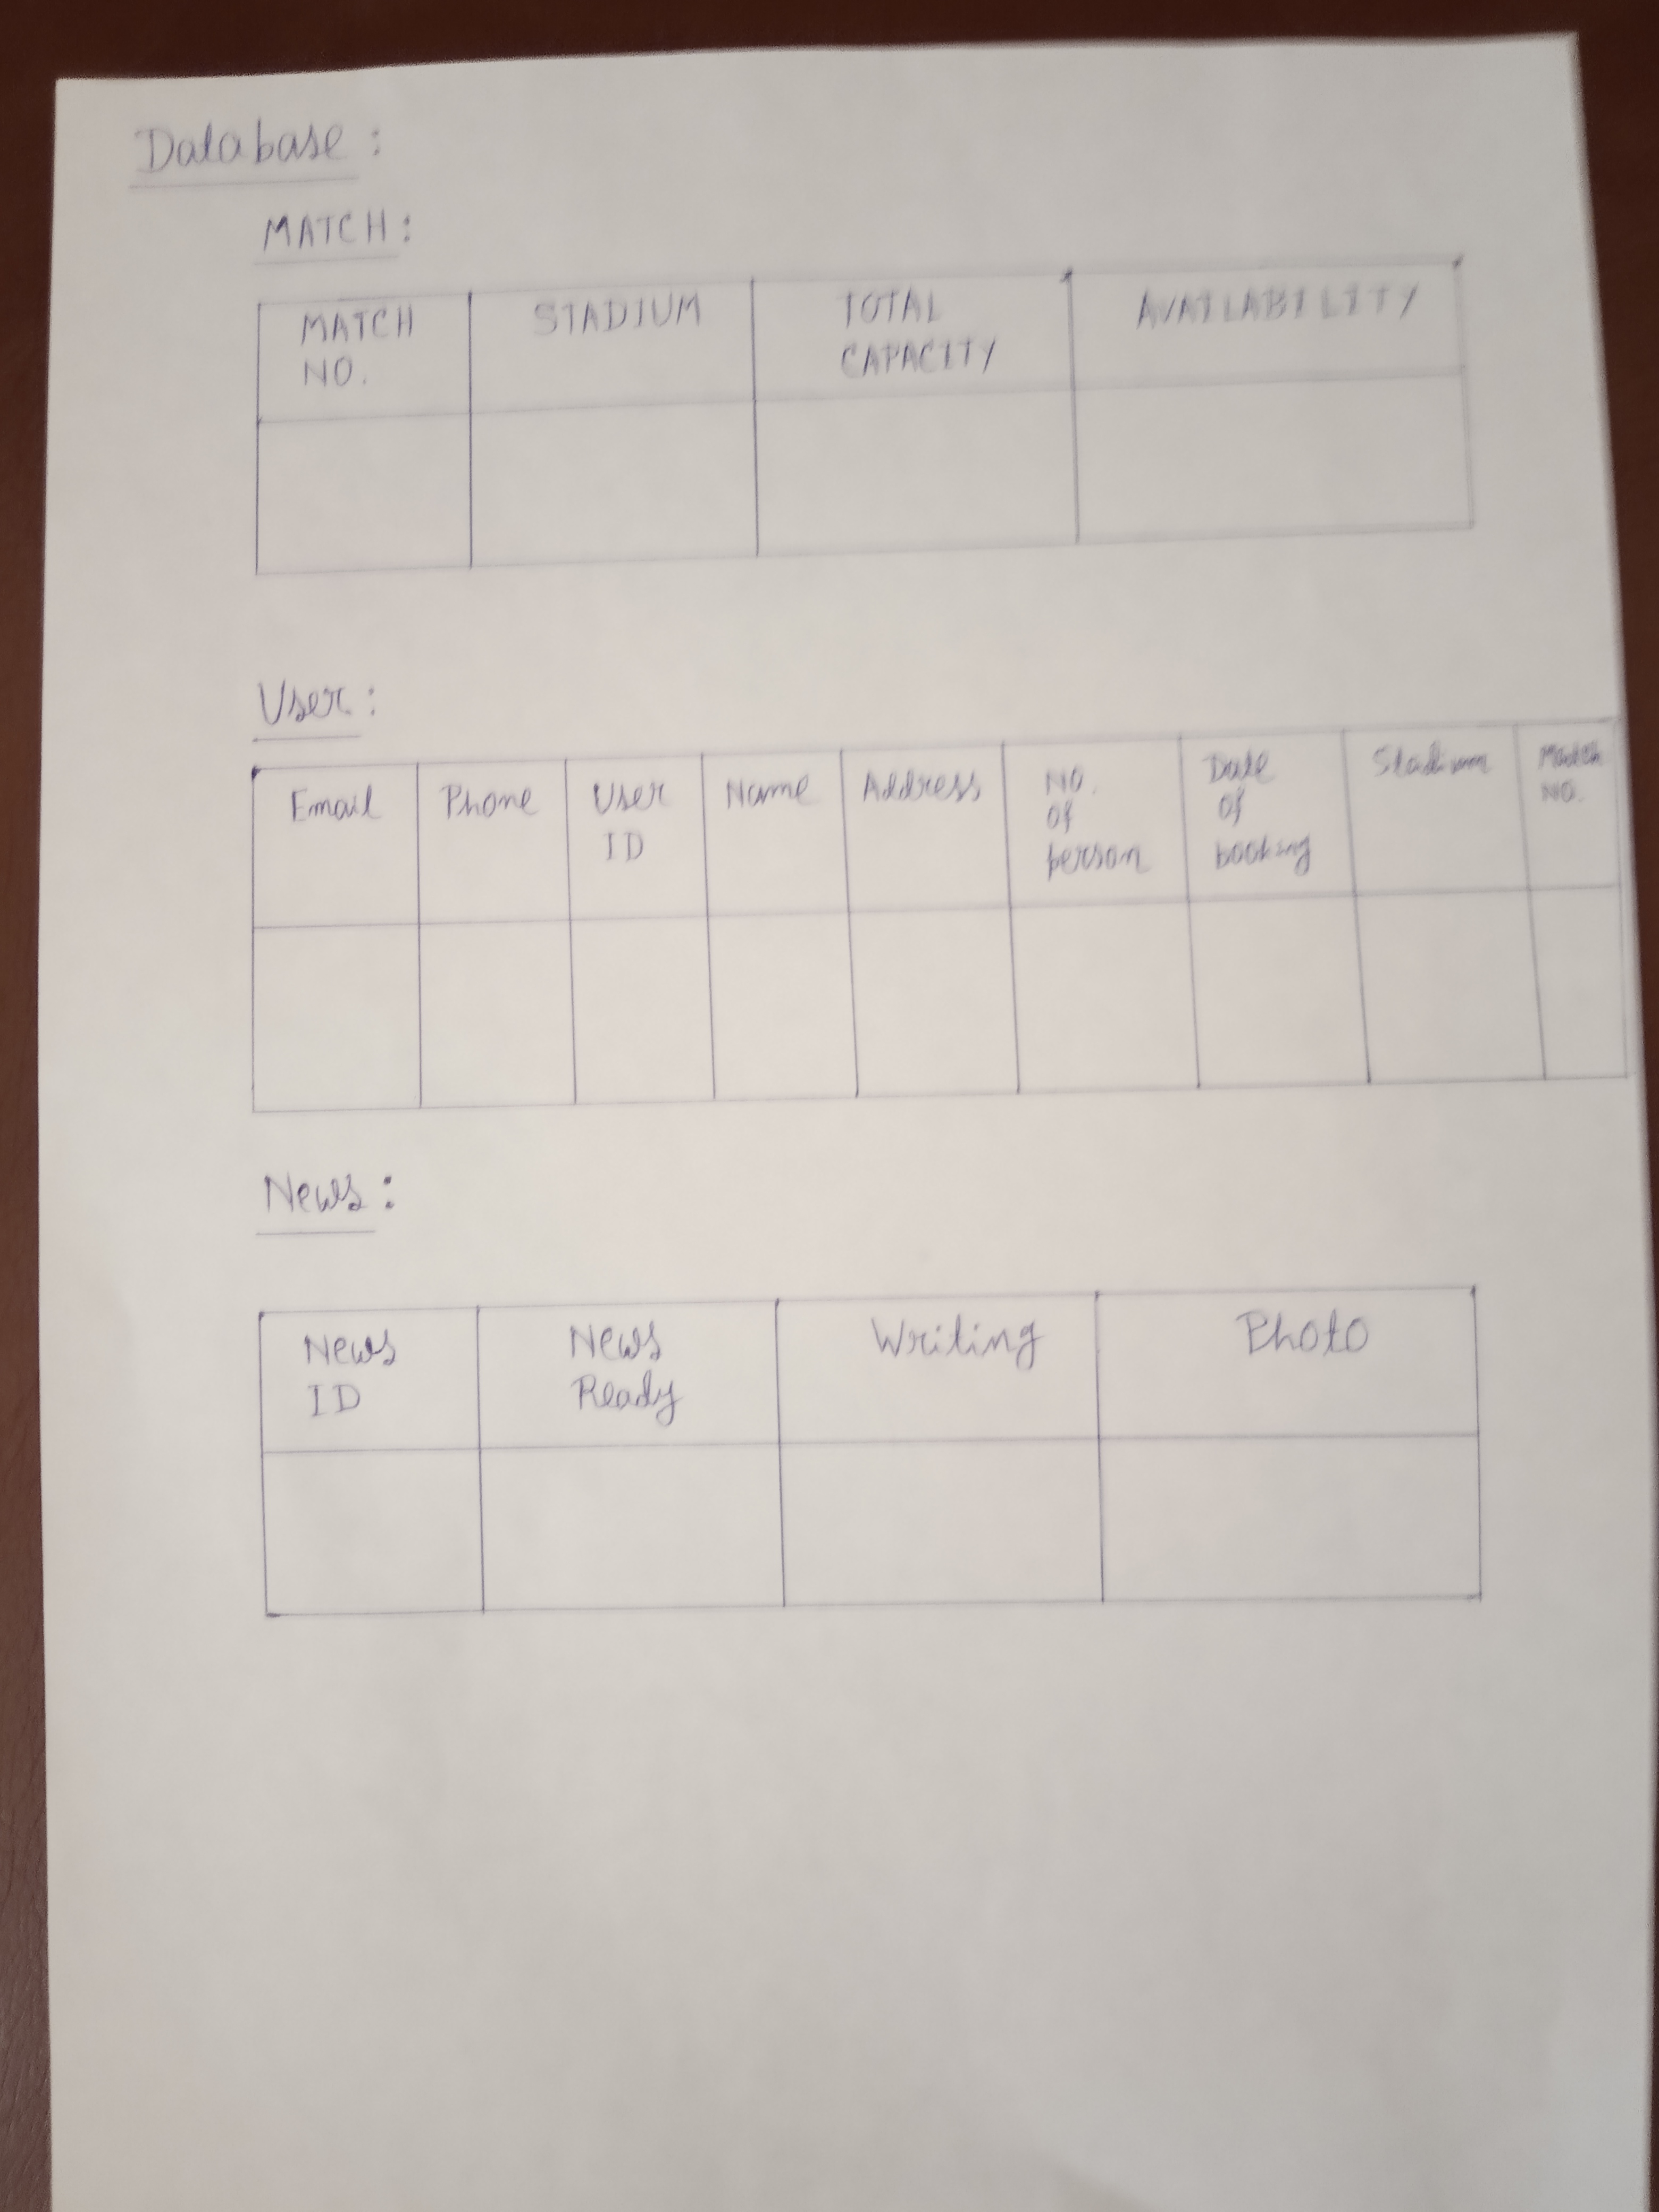 Database :
MATCH :
MATCH NO. STADIUM TOTAL CAPACITY AVAILABILITY
User :
Email Phone User ID Name Address No. of person Date of booking Stadium Match NO.
News :
News ID News Ready Writing Photo